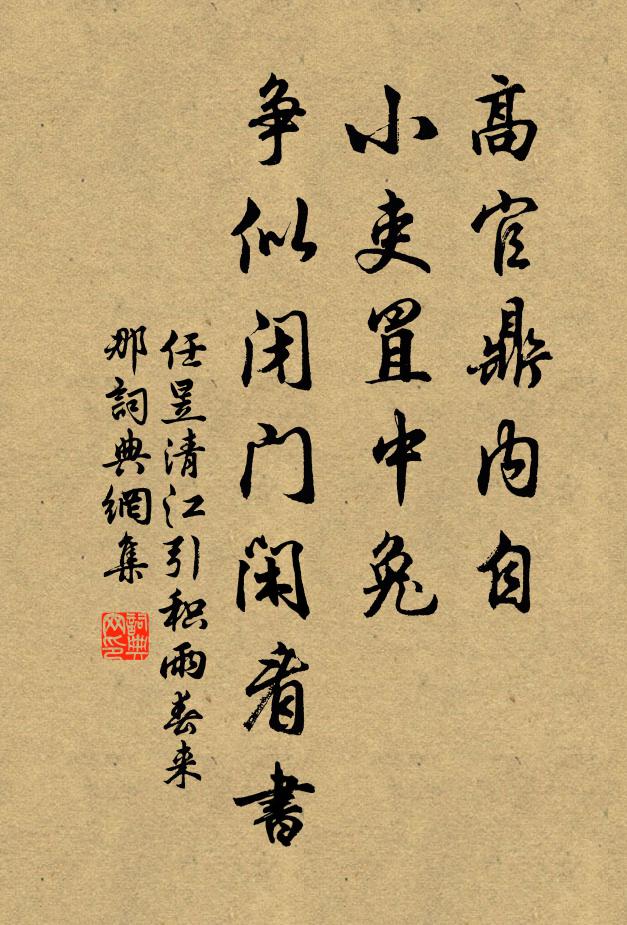 高官鼎内自
小吏罝中兔
争似闭门闲看書
任昱清江引积雨春来
那詞典網集
詞典
网印